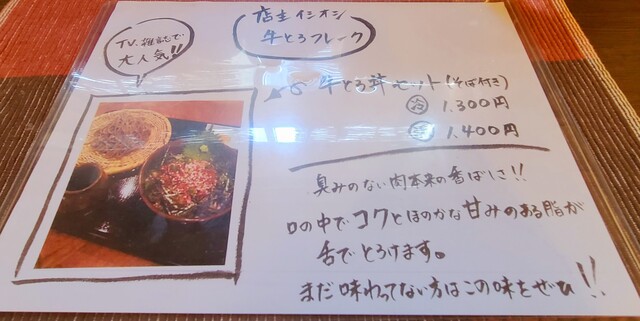 TV、雑誌で
大人気!!
店主イチオシ
牛とろフレーク
牛とろ丼セット(そば付き)
冷 1.300円
1.400円
臭みのない肉本来の香ばしさ!!
口の中でコクとほのかな甘みのある脂が
舌でとろけます。
まだ味わってない方はこの味をぜひ!!